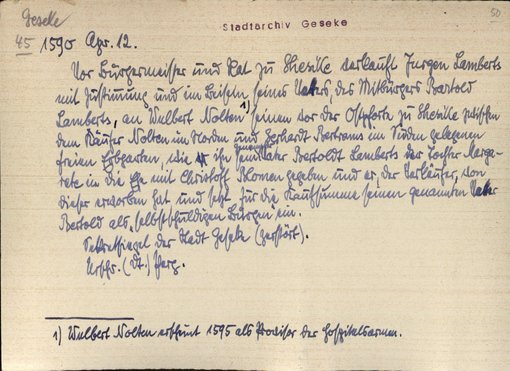 Geseke
50
Stadtarchiv Geseke
45 1590 Apr. 12.
Vor Bürgermeister und Rat zu Ghesike verkauft Jurgen Lamberts
mit Zustimmung und im Beisein seines Vaters, des Mitbürgers Bartold
Lamberts, an Wulbert Nolten 1) seinen vor der Ostpforte zu Ghesike zwischen
dem Käufer Nolten im Norden und Gerhardt Bertrams im Süden gelegenen
freien Erbgarten, wie ihn sein Vater Bertoldt Lamberts der Tochter Marga-
rete in die Ehe mit Christoff Blomen gegeben und er, der Verkäufer, von
dieser erworben hat und setzt für die Kaufsumme seinen genannten Vater
Bertold als selbstschuldigen Bürgen ein.
Sekretsiegel der Stadt Geseke (zerstört).
Urschr. (dt.) Perg.
1) Wulbert Nolten erscheint 1595 als Provisor der Hospitalsarmen.